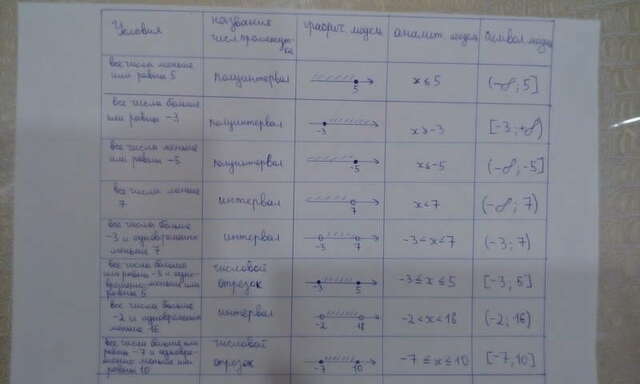 Условия
названия
числ. промежут-
ка
графич. модель
аналит. модель
символ. модель
все числа меньше
или равны 5
полуинтервал
5
x ≤ 5
(-∞; 5]
все числа больше
или равны -3
полуинтервал
-3
x ≥ -3
[-3; +∞)
все числа меньше
или равны -5
полуинтервал
-5
x ≤ -5
(-∞; -5]
все числа меньше
7
интервал
7
x < 7
(-∞; 7)
все числа больше
-3 и одновременно
меньше 7
интервал
-3 7
-3 < x < 7
(-3; 7)
все числа больше
или равны -3 и одно-
временно меньше или
равны 5
числовой
отрезок
-3 5
-3 ≤ x ≤ 5
[-3; 5]
все числа больше
-2 и одновременно
меньше 16
интервал
-2 16
-2 < x < 16
(-2; 16)
все числа больше или
равны -7 и одновре-
менно меньше или
равны 10
числовой
отрезок
-7 10
-7 ≤ x ≤ 10
[-7; 10]